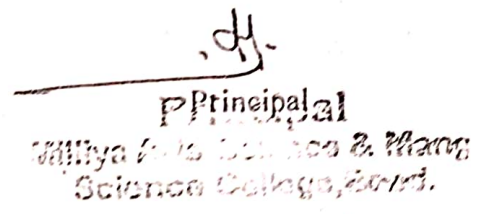 Principal
Principal
Milliya Arts Science & Mang
Science College, Beed.